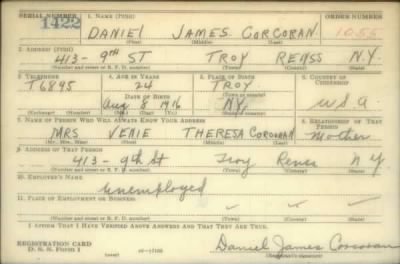 SERIAL NUMBER 1. NAME (Print) ORDER NUMBER
1422 DANIEL JAMES CORCORAN 1055
(First) (Middle) (Last)
2. ADDRESS (Print)
413- 9TH ST TROY RENSS N.Y.
(Number and street or R. F. D. number) (Town) (County) (State)
3. TELEPHONE 4. AGE IN YEARS 5. PLACE OF BIRTH 6. COUNTRY OF CITIZENSHIP
T6895 24 TROY
DATE OF BIRTH (Town or county)
Aug 8 1916 N.Y. U.S.A
(Exchange) (Number) (Mo.) (Day) (Yr.) (State or country)
7. NAME OF PERSON WHO WILL ALWAYS KNOW YOUR ADDRESS 8. RELATIONSHIP OF THAT PERSON
MRS VENIE THERESA CORCORAN Mother
(Mr., Mrs., Miss) (First) (Middle) (Last)
9. ADDRESS OF THAT PERSON
413- 9th St Troy Renss N Y
(Number and street or R. F. D. number) (Town) (County) (State)
10. EMPLOYER'S NAME
Unemployed
11. PLACE OF EMPLOYMENT OR BUSINESS
(Number and street or R. F. D. number) (Town) (County) (State)
I AFFIRM THAT I HAVE VERIFIED ABOVE ANSWERS AND THAT THEY ARE TRUE.
REGISTRATION CARD
D. S. S. Form 1 (over) Daniel James Corcoran
(Registrant's signature)